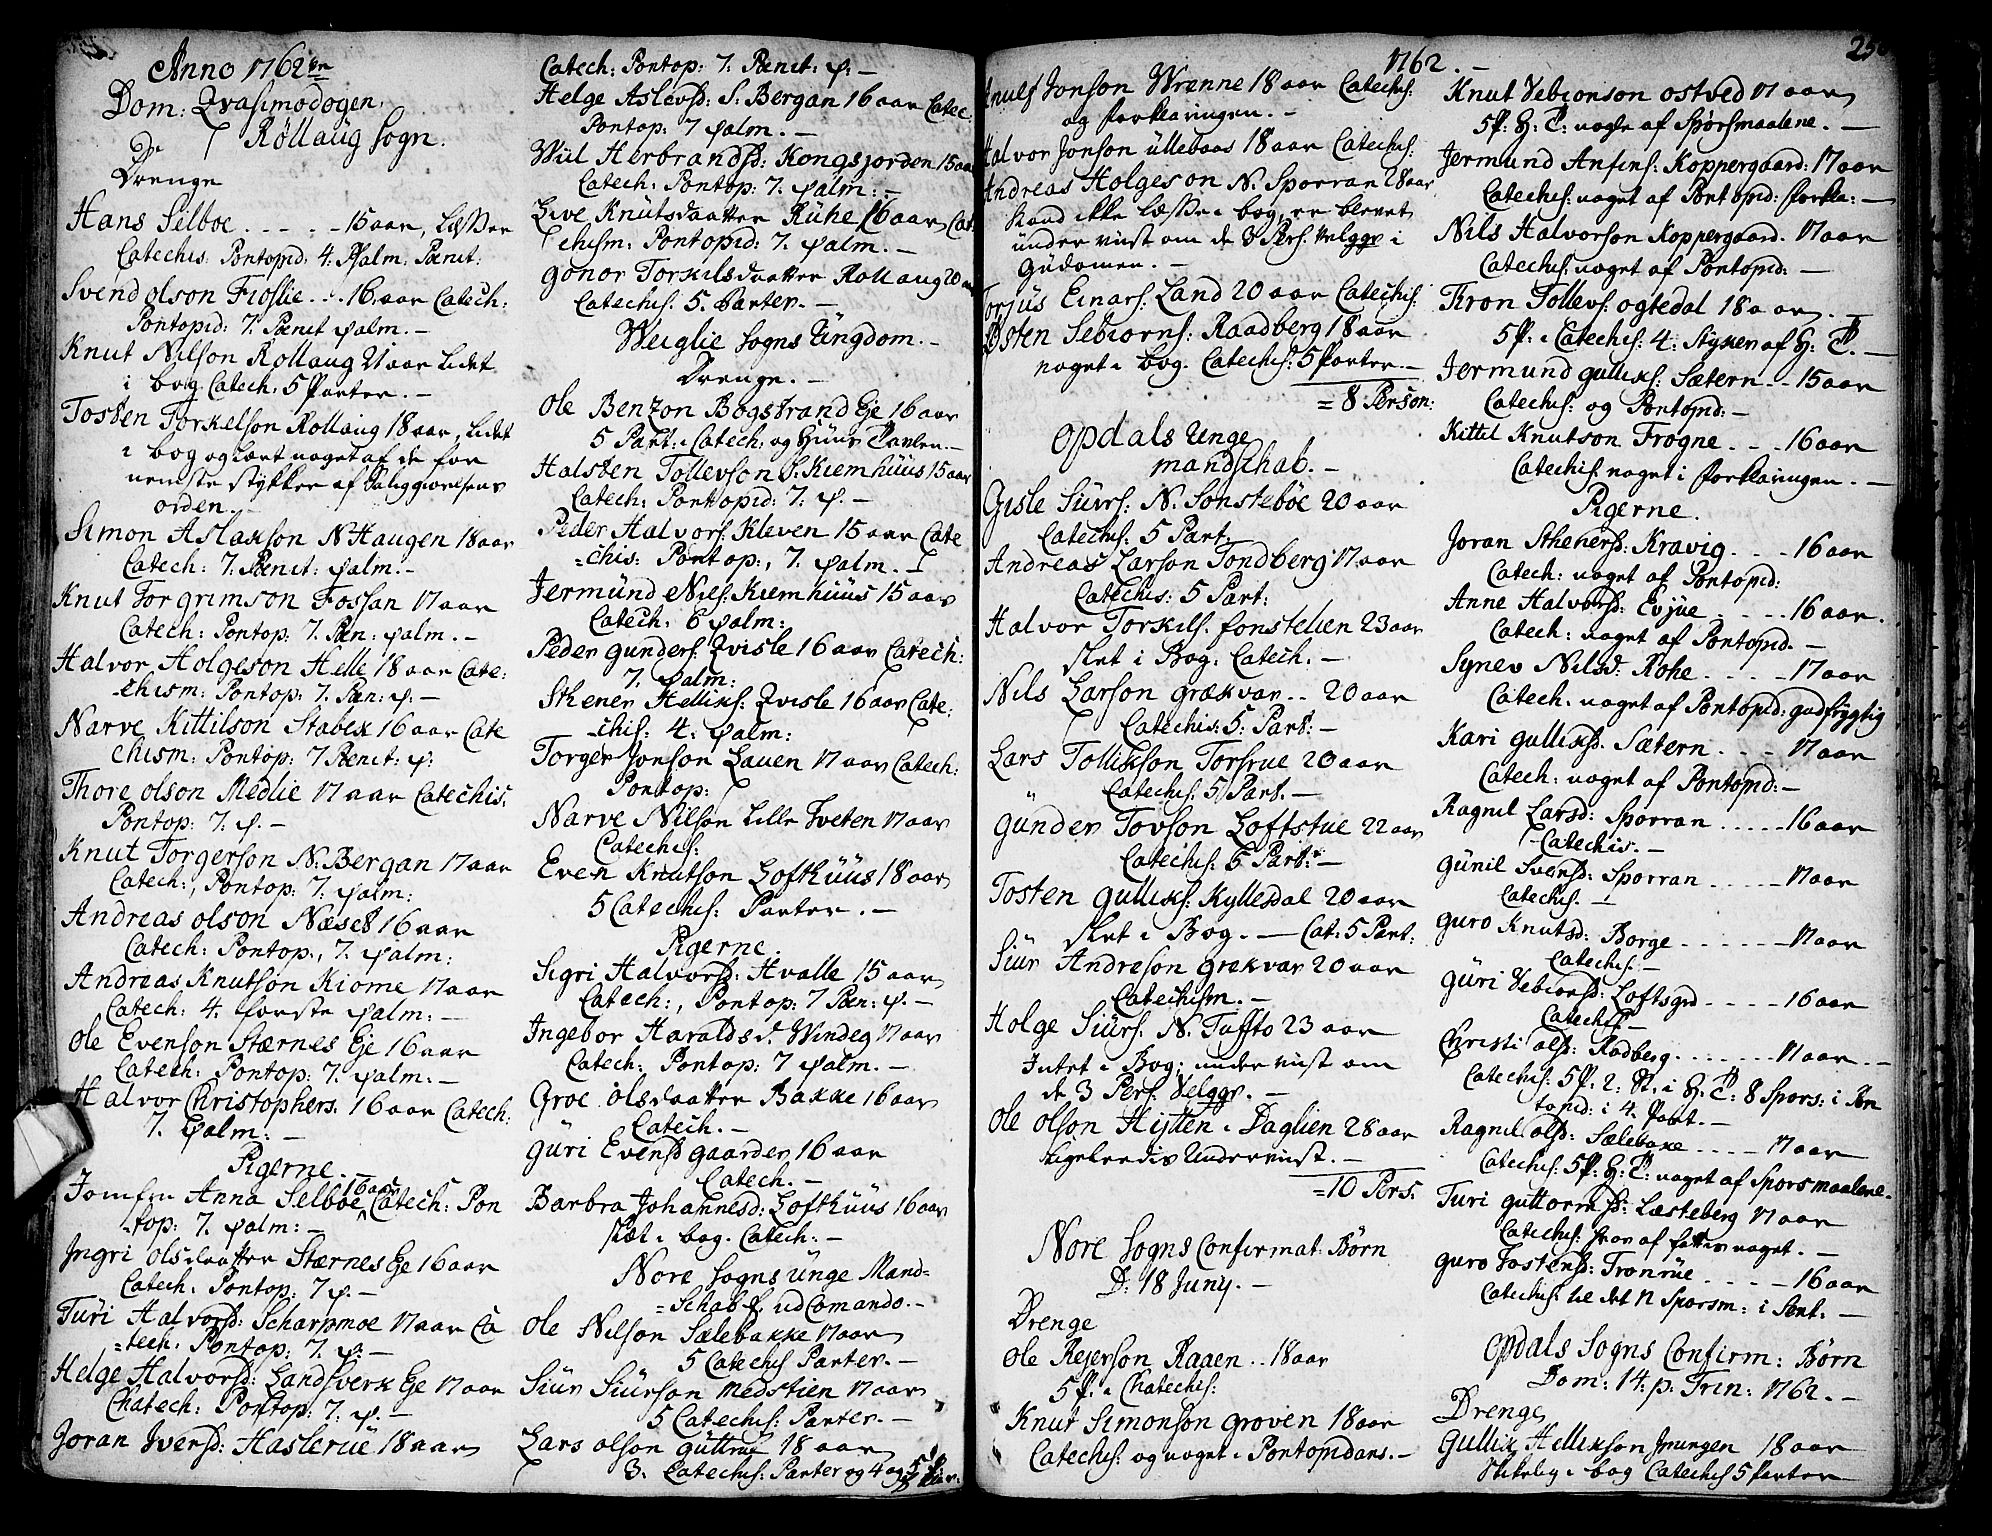 Anno 1762
Dom: Qvasimodogen.
Rollaug Sogn.
Drenge
Hans Selboe . . . . 15 aar, Læsser
Catechis: Pontopid: 4. Psalm: Pœnit:
Svend Olson Froslie . . 16 aar Catech:
Pontopid: 7. Pœnit psalm. –
Knut Nilson Rollaug 21 aar Lidet
i bog Catech: 5 Parter. –
Tosten Torkelson Rollaug 18 aar, Lidet
i bog og lært noget af de for
nemste stykker af Saliggiørelsens
orden. –
Simon Aslakson N. Haugen 18 aar
Catech: 7. Pœnit: psalm. –
Knut Torgrimson Fossan 17 aar
Catech: Pontop: 7. Pœn: psalm. –
Halvor Holgeson Helle 18 aar Cate:
chism: Pontop: 7. Pœn: ps. –
Narve Kittilson Stabek 16 aar Cate
chism: Pontop: 7 Pœnit: ps:
Thore Olson Medlie 17 aar Catechis.
Pontop: 7: ps. –
Knut Torgerson N: Bergan 17 aar
Catech:, Pontop: 7. psalm:
Andreas Olson Næset 16 aar
Catech: Pontop:, 7. psalm:
Andreas Knutson Kiome 17 aar
Catech: 4. første psalm: –
Ole Evenson Stærnes Eje 16 aar
Catech: Pontop: 7. psalm: –
Halvor Christophers. 16 aar Catech:
7. psalm: –
Pigerne. –
Jomfru Anna Selboe 16 aar Catech: Pon
top: 7. psalm: –
Ingri Olsdaatter Stærnes Eje 16 aar
Catech: Pontop: 7 ps. –
Turi Halvorsd: Scharpmoe 17 aar Ca
=tech: Pontop: 7. ps. –
Helge Halvorsd: Landsverk Eje 17 aar
Chatech: Pontop: 7: ps. –
Joran Iversd: Haslerue 18 aar
Catech: Pontop: 7: Pœnit: ps: –
Helge Aslevsd: S: Bergan 16 aar Catec:
Pontop: 7 psalm. –
Wiil Herbrandsd: Kongsjorden 15 aar
Catech: Pontop: 7. psalm: –
Live Knutsdaatter Ruhe 16 aar Cat
echism: Pontopid: 7. psalm. –
Gonor Torkilsdaatter Rollaug 20 aar
Catechis. 5. Parter. –
Weiglie Sogns Ungdom. –
Drenge. –
Ole Benzon Bogstrand Eje 16 aar
5 Part: i Catech: og Huus Tavlen –
Halsten Tollevson S. Kiemhuus 15 aar
Catech: Pontopid: 7: ps. –
Peder Halvors: Kleven 15 aar Cate
=chis: Pontop:, 7. psalm. –
Jermund Niels: Kiemhuus 15 aar
Catech: 6 psalm:
Peder Gunders: Qvisle 16 aar Catech:
7. psalm:
Sthener Helliks: Qvisle 16 aar Cate:
chis: 4. psalm:
Torger Jonson Lauen 17 aar Catech:
Pontop:
Narve Nilson Lille Tveten 17 aar
Catechis:
Even Knutson Lofthuus 18 aar
5 Catechis: Parter. –
Pigerne.
Sigri Halvorsd: Hvalle 15 aar
Catech:, Pontop: 7 Pœn: ps. –
Ingebor Haraldsd. Windeg 17 aar
Catech: Pontop: 7 psalm. –
Groe Olsdaatter Bakke 16 aar
Catech. –
Guri Evensd Gaarden 16 aar
Catech. –
Barbra Johannesd: Lofthuus 16 aar
slæt i bog. Catech: –
Nore Sogns Unge Mand=
=Schab ud Comando. –
Ole Nilson Sælebakke 17 aar
5 Catechis Parter. –
Siur Siurson Medstien 17 aar
5 Catechis: Parter. –
Lars Olson Guttrue 18 aar
3. Catechis: Parter og 4 og 5
1762. –
Jonson Wrenne 18 aar Catechis:
og Forklaringen. –
Halvor Jonson Ullebaas 18 aar Catechis:
Andreas Holgeson N. Sporran 28 aar
kand ikke læsse i bog, er blevet
under viist om de 3 Pers: i
Gudomen. –
Torjus Einars: Land 20 aar Catechis:
Østen Sebiorns: Raadberg 18 aar
noget i bog. Catechis: 5 Parter. –
= 8 Person:
Opdals Unge
mandschab. –
Gisle Siurs: N. Sonstebøe 20 aar
Catechis: 5 Part.
Andreas Larson Tondberg 17 aar
Catechis: 5 Part:
Halvor Torkils. Fonstelien 23 aar
slet i Bog. Catech. –
Nils Larson Grækvar . . 20 aar
Catechis: 5: Part: –
Lars Tollikson Torsrue 20 aar
Catechis: 5 Part. –
Gunder Tovson Loftstue 22 aar
Catechis: 5 Part: –
Tosten Gulliks: Kyllesdal 20 aar
slet i Bog. – Cat: 5 Part:
Siur Andreson Grekvar 20 aar
Catechism. –
Holge Siurs. N. Tuffto 23 aar
Intet i Bog; underviist om
de 3 Pers. –
Ole Olson Hytten i Daglien 28 aar
ligeleedis Underviist. –
=10 Pers.
Nore Sogns Confirmat: Børn
D: 18 Juny. –
Drenge
Ole Reierson Raaen . . 18 aar
5 P: i Chatechis:
Knut Simonson Groven 18 aar
Catechis: og noget i Pontopidans. –
Knut Vebionson Ostved 17 aar
5 P: H: T: nogle af Spørsmaalene. –
Jermund Anfins: Koppergaard: 17 aar
Catechis: noget af Pontopid: Forkla: –
Nils Halvorson Koppergaard. 17 aar
Catechis: noget af Pontopid: –
Tron Tollevs: Ogtedal 18 aar. –
5 P. i Catechis: 4: Styker af H: T. –
Jermund Gulliks: Sætern . . 15 aar
Catechis: og Pontopid: –
Kittil Knutson Frogne . . . 16 aar
Catechis: noget i Forklaringen. –
Pigerne.
Joran Sthenersd: Kravig . . . 16 aar
Catech: noget af Pontopid:
Anne Halvorsd: Evjue . . . . 16 aar.
Catech: noget af Pontopid. –
Synev Nilsd: Rohe . . . . . 17 aar
Catech: noget af Pontopid: gudfrygtig
Kari Gulliksd. Sætern . . . 17 aar
Catech: noget af Pontopid: –
Ragnil Larsd: Sporran . . . . . 16 aar
Catechis. –
Gunil Svensd: Sporran . . . . . 17 aar
Catechis. –
Guro Knutsd: Borge . . . . . . 17 aar
Catechis: –
Guri Vebionsd: Loftsgrd . . . . . 16 aar
Catechis. –
Christi Olsd: Radberg . . . . . . . 17 aar . . –
Catechis: 5 P. 2: St. i H: T: 8 Spors: i Pon
topid: i 4. Part. –
Ragnil Olsd: Sælebake . . . . 17 aar
Catechis: 5 P: H: T: noget af Sporsmaalene.
Turi Guttormsd: Læsteberg 17 aar
Catechis: noget. –
Guro Tostensd: Tronrue . . . . . 16 aar
Catechis: til det 17 Sporsm: i Pont. –
Opdals Sogns Confirm: Børn
Dom: 14: p: Trin: 1762. –
Drenge
Gullik Hellikson Imingen 18 aar
i bog Catechis 5 Parter